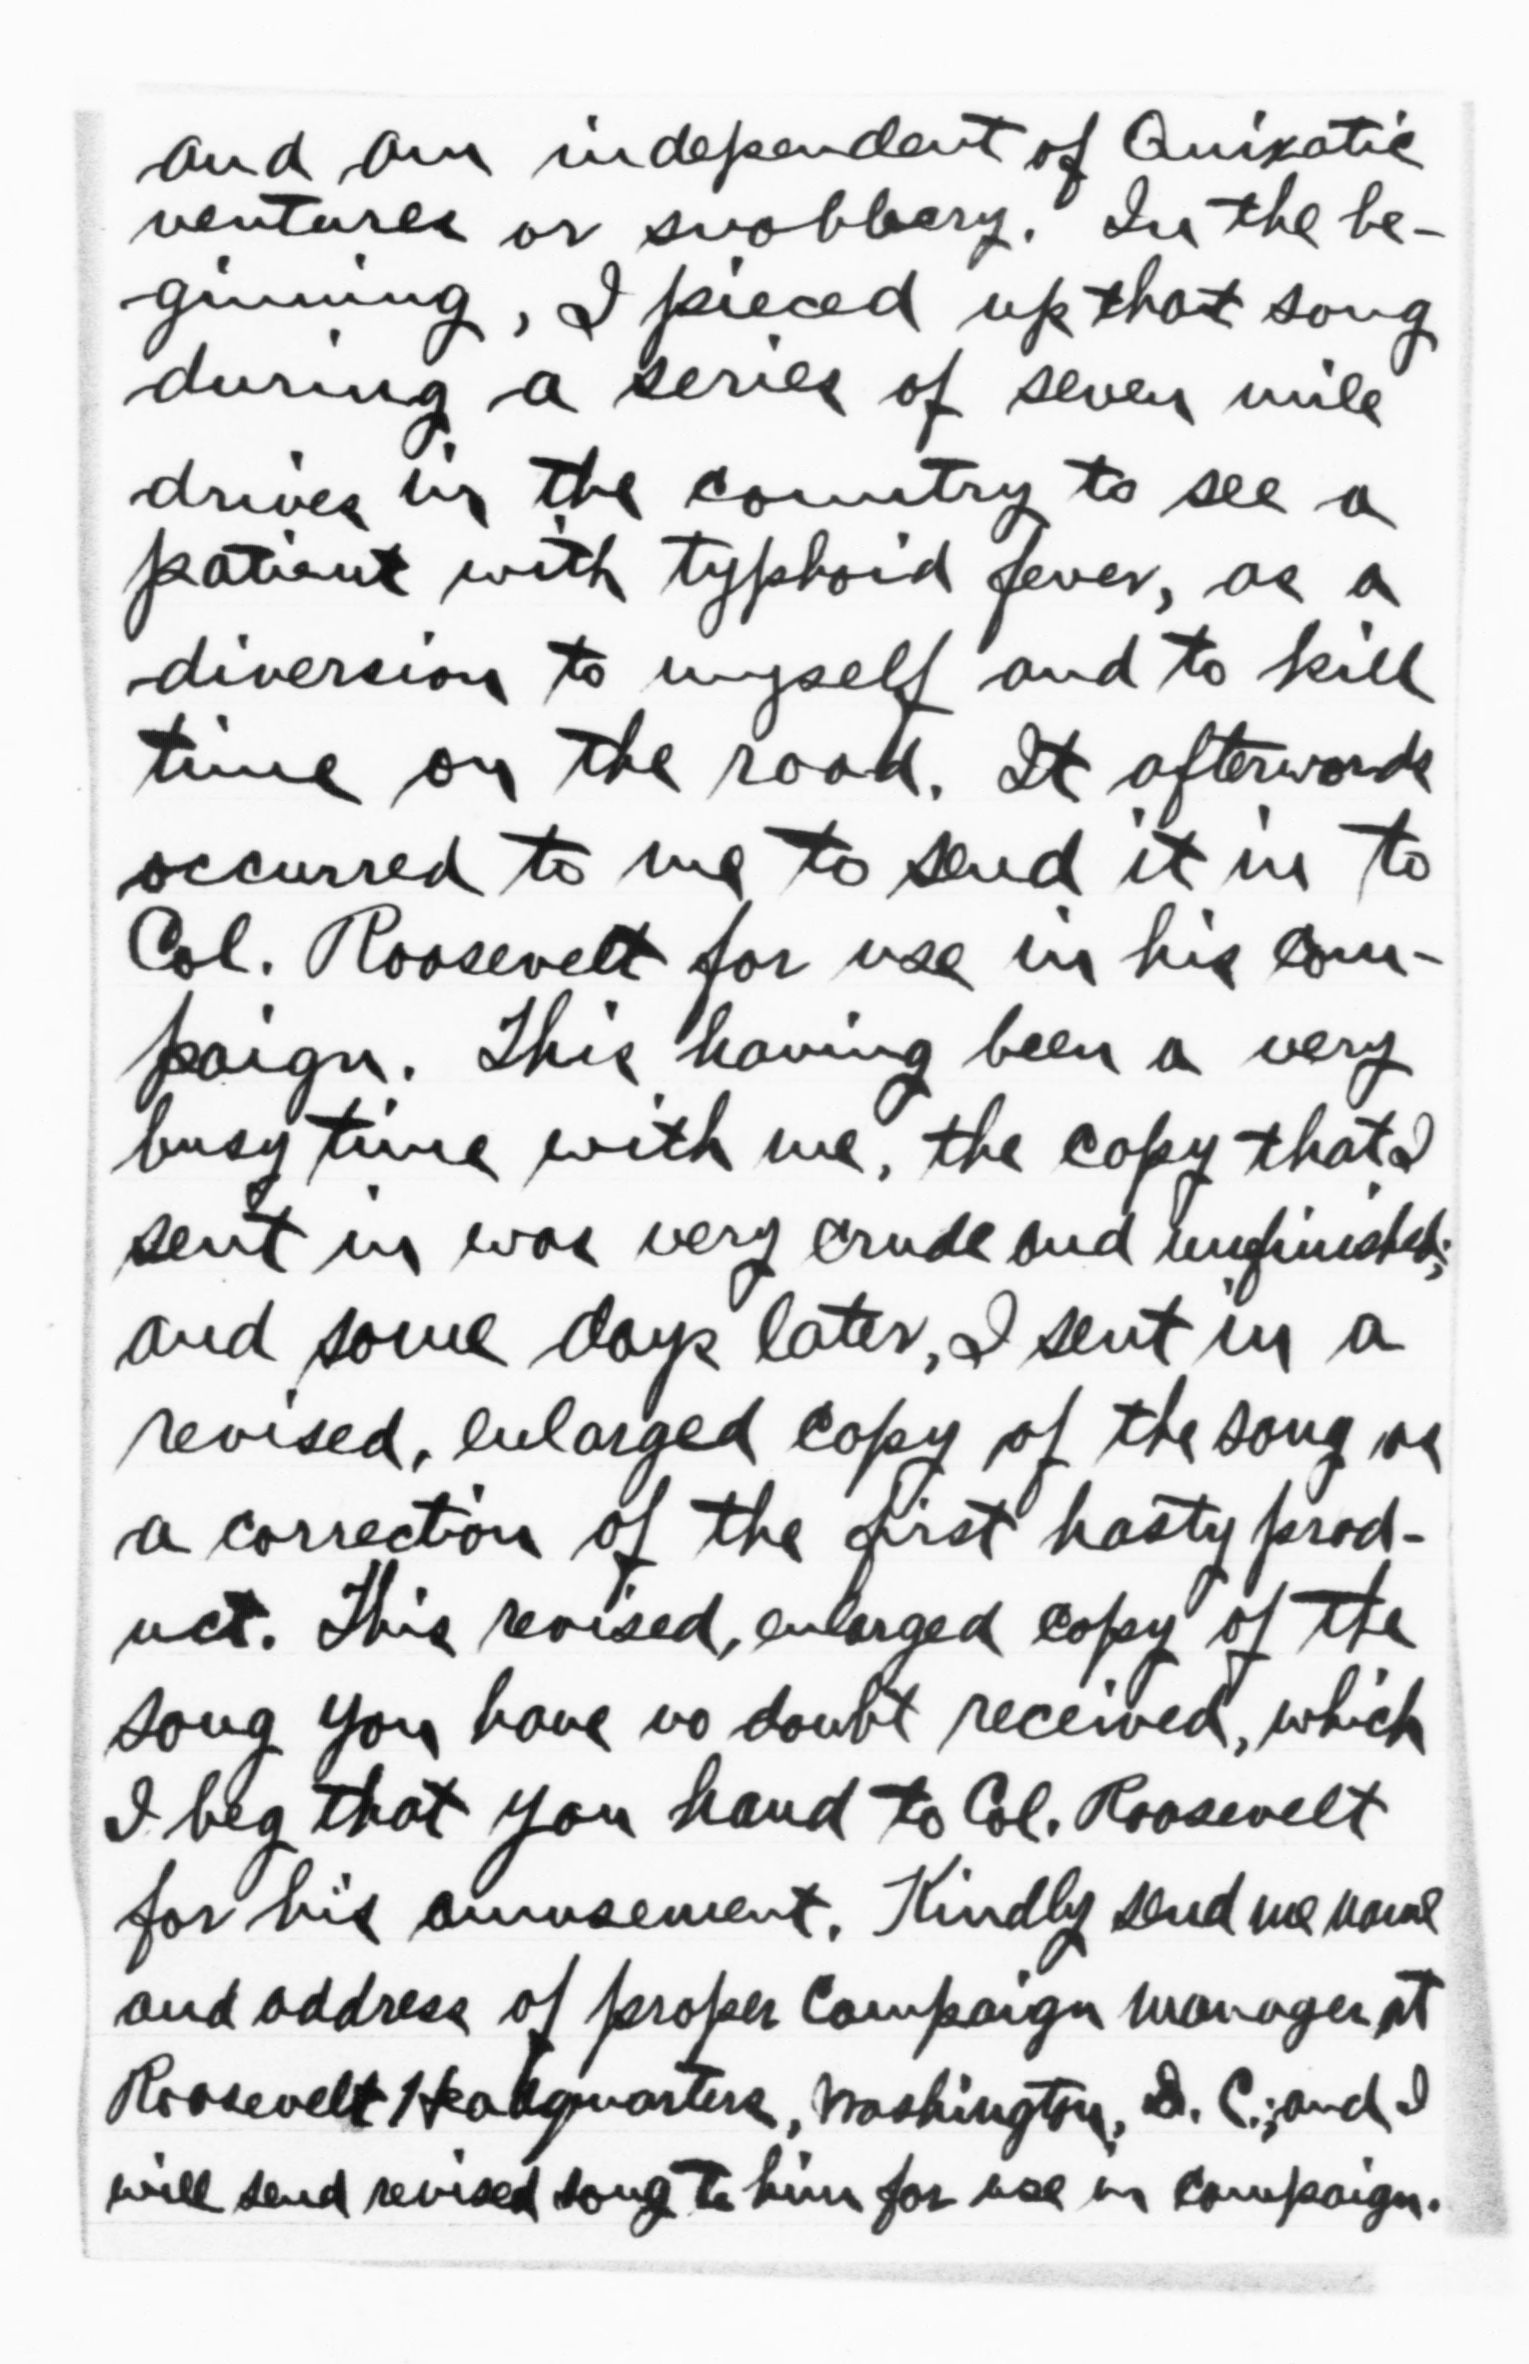 and am independent of Quixotic
ventures or snobbery. In the be-
ginning, I pieced up that song
during a series of seven mile
drives in the country to see a
patient with typhoid fever, as a
diversion to myself and to kill
time on the road. It afterwards
occurred to me to send it in to
Col. Roosevelt for use in his cam-
paign. This having been a very
busy time with me, the copy that I
sent in was very crude and unfinished;
and some days later, I sent in a
revised, enlarged copy of the song as
a correction of the first hasty prod-
uct. This revised, enlarged copy of the
song you have no doubt received, which
I beg that you hand to Col. Roosevelt
for his amusement. Kindly send me name
and address of proper Campaign manager at
Roosevelt Headquarters, Washington, D. C.; and I
will send revised song to him for use in campaign.